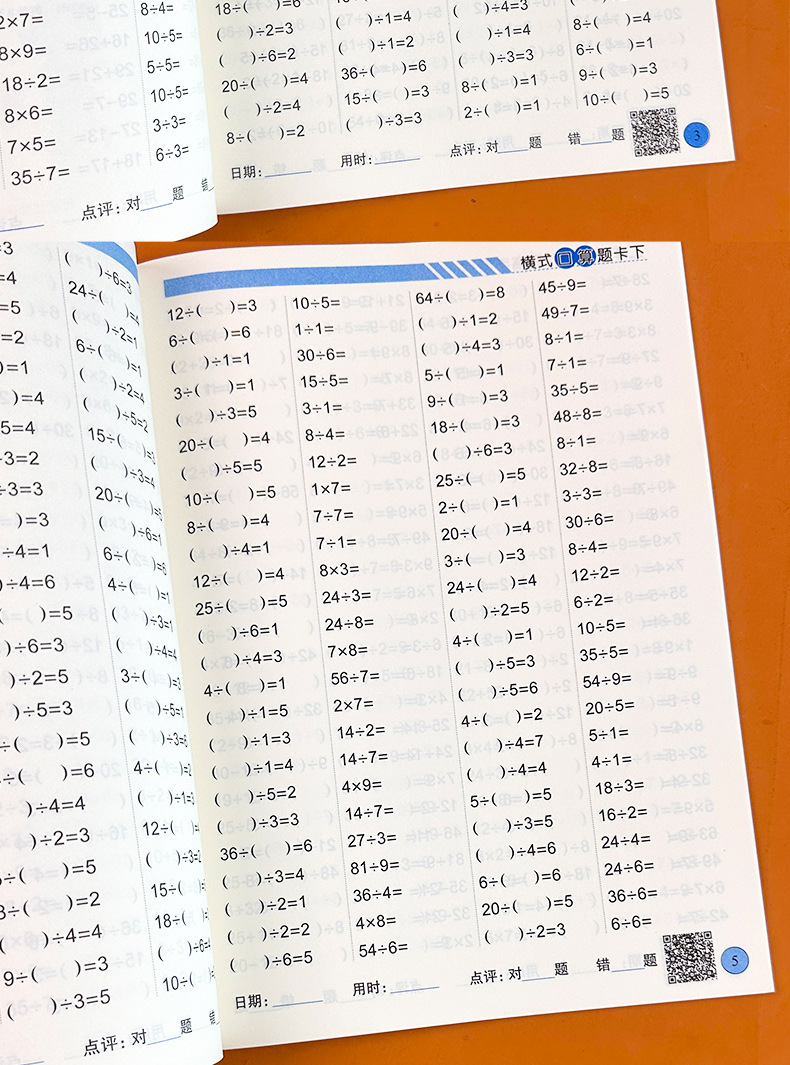 2×7=
8×9=
18÷2=
8×6=
7×5=
35÷7=
8÷4=
10÷5=
5÷5=
10÷5=
3÷3=
6÷3=
点评：对____题 错
18÷( )=6
( )÷2=3
( )÷6=2
20÷( )=4
( )÷2=4
8÷( )=2
( )÷1=4
( )÷1=2
36÷( )=6
15÷( )=3
( )÷3=3
( )÷4=3
( )÷1=4
( )÷3=3
8÷( )=1
2÷( )=1
8÷( )=4
6÷( )=1
9÷( )=3
10÷( )=5
日期：____ 用时：____ 点评：对____题 错____题
3
÷3
=4
=5
=2
)=1
)=4
5=4
÷3=2
÷3=3
)=3
÷4=1
)÷4=6
( )=5
)÷6=3
)÷2=5
)÷5=3
÷( )=5
÷( )=6
)÷4=4
)÷2=3
÷( )=5
8÷( )=2
)÷4=4
9÷( )=3
( )÷3=5
( )÷6=3
24÷( )=4
( )÷2=1
6÷( )=
( )÷2=4
( )÷5=2
15÷( )=3
( )÷3=4
20÷( )=5
( )÷6=1
6÷( )=6
4÷( )=1
( )÷3=1
( )÷4=4
3÷( )=3
( )÷5=1
( )÷3=6
4÷( )=2
( )÷1=3
12÷( )=
( )÷3=2
15÷( )=
18÷( )=
( )÷6=
10÷( )=
点评：对____题 错
横式口算题卡下
12÷( )=3
6÷( )=6
( )÷1=1
3÷( )=1
( )÷3=5
20÷( )=4
( )÷5=5
10÷( )=5
8÷( )=4
( )÷4=1
12÷( )=4
25÷( )=5
( )÷6=1
( )÷4=3
4÷( )=1
( )÷1=5
( )÷1=3
( )÷1=4
( )÷5=2
( )÷3=3
36÷( )=6
( )÷3=4
( )÷2=1
( )÷2=2
( )÷6=5
10÷5=
1÷1=
30÷6=
15÷5=
3÷1=
8÷4=
12÷2=
1×7=
7÷7=
7÷1=
8×3=
24÷3=
24÷8=
7×8=
56÷7=
2×7=
14÷2=
14÷7=
4×9=
14÷7=
27÷3=
81÷9=
36÷4=
4×8=
54÷6=
64÷( )=8
( )÷1=2
( )÷4=3
5÷( )=1
9÷( )=3
18÷( )=3
( )÷6=3
25÷( )=5
2÷( )=1
20÷( )=4
3÷( )=3
24÷( )=4
( )÷2=5
4÷( )=1
( )÷5=3
( )÷5=6
4÷( )=2
( )÷4=7
( )÷4=4
5÷( )=5
( )÷3=5
( )÷4=6
6÷( )=6
20÷( )=5
( )÷2=3
45÷9=
49÷7=
8÷1=
7÷1=
35÷5=
48÷8=
8÷1=
32÷8=
3÷3=
30÷6=
8÷4=
12÷2=
6÷2=
10÷5=
35÷5=
54÷9=
20÷5=
5÷1=
4÷1=
18÷3=
16÷2=
24÷4=
24÷6=
36÷6=
6÷6=
日期：____ 用时：____ 点评：对____题 错____题
5